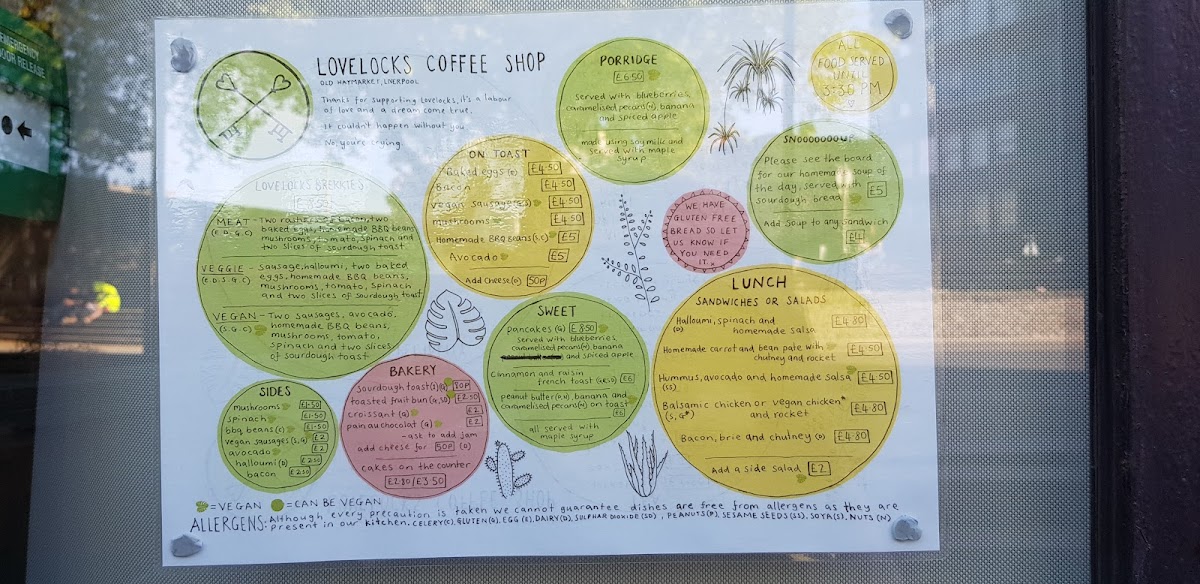 EMERGENCY
DOOR RELEASE
LOVELOCKS COFFEE SHOP
OLD HAYMARKET, LIVERPOOL
Thanks for supporting Lovelocks, it's a labour
of love and a dream come true.
It couldn't happen without you
No, you're crying.
PORRIDGE
£6.50
Served with blueberries,
caramelised pecans(N), banana
and spiced apple
made using soy milk and
served with maple
syrup
ALL
FOOD SERVED
UNTIL
3:35 PM
Please see the board
for our homemade soup of
the day, served with
sourdough bread
£5
Add soup to any sandwich
£4
ON TOAST
Baked eggs (E) £4.50
Bacon £4.50
vegan sausage £4.50
mushrooms £4.50
Homemade BBQ Beans (S,C) £5
Avocado £5
Add cheese (D) 50p
WE HAVE
GLUTEN FREE
BREAD SO LET
US KNOW IF
YOU NEED
IT.
LOVELOCKS BREKKIES
£8.50
MEAT - Two rashers of bacon, two
(E.D.G.C) baked eggs, homemade BBQ beans
mushrooms, tomato, spinach and
two slices of sourdough toast
VEGGIE - Sausage, halloumi, two baked
(E.D.S.G.C) eggs, homemade BBQ beans,
mushrooms, tomato, spinach
and two slices of sourdough toast
VEGAN - Two sausages, avocado,
(S.G.C) homemade BBQ beans,
mushrooms, tomato,
spinach and two slices
of sourdough toast
SIDES
mushrooms £1.50
spinach £1.50
bbq beans (C) £1.50
vegan sausages (S,G) £2
avocado £2
halloumi (D) £2.50
bacon £2.50
BAKERY
Sourdough toast (S)(G) 80p
toasted fruit bun (G,SD) £2.50
croissant (G) £2
pain au chocolat (G) £2
- ask to add jam
add cheese for 50p (D)
cakes on the counter
£2.80/£3.50
SWEET
pancakes (G) £8.50
served with blueberries,
caramelised pecans(N), banana
and spiced apple
Cinnamon and raisin
french toast £6
peanut butter (P,N), banana and
caramelised pecans (N) on toast
£6
all served with
maple syrup
LUNCH
SANDWICHES OR SALADS
Halloumi, spinach and £4.80
(D) homemade salsa
Homemade carrot and bean pate with £4.50
chutney and rocket
Hummus, avocado and homemade salsa £4.50
(SS)
Balsamic chicken or vegan chicken* £4.80
(S,G*) and rocket
Bacon, brie and chutney (D) £4.80
Add a side salad £2
=VEGAN =CAN BE VEGAN
ALLERGENS: Although every precaution is taken we cannot guarantee dishes are free from allergens as they are
present in our kitchen. CELERY(C), GLUTEN(G), EGG (E), DAIRY(D), SULPHAR DIOXIDE (SD), PEANUTS(P), SESAME SEEDS(SS), SOYA(S), NUTS (N)